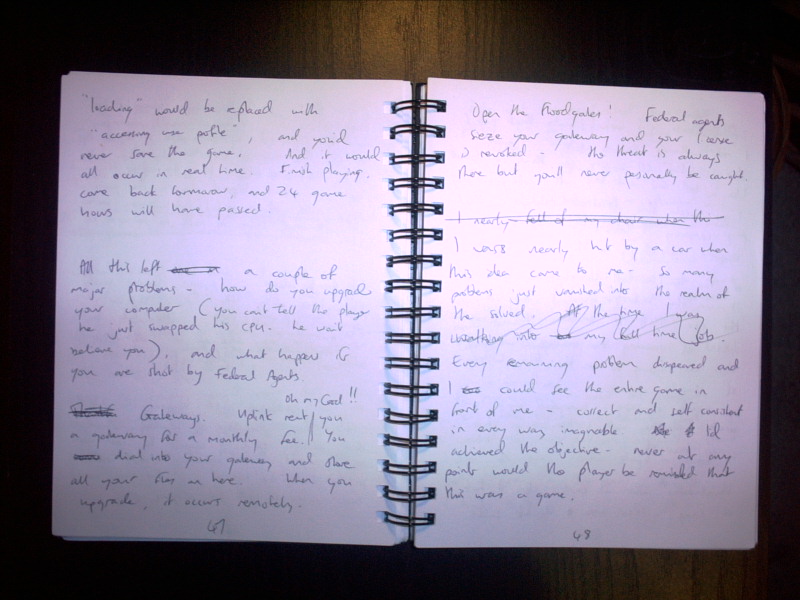 "loading" would be replaced with
"accessing user profile", and you'd
never save the game. And it would
all occur in real time. Finish playing,
come back tomorrow, and 24 game
hours will have passed.
All this left a couple of
major problems - how do you upgrade
your computer (you can't tell the player
he just swapped his CPU - he wont
believe you). and what happens if
you are shot by Federal Agents.
Oh my God!!
Gateways. Uplink rent you
a gateway for a monthly fee. You
dial into your gateway and store
all your files on here. When you
upgrade, it occurs remotely.
47
Open the Floodgates! Federal agents
seize your gateway and your license
is revoked - the threat is always
there but you'll never personally be caught.
I nearly fell of my chair when this
I was nearly hit by a car when
this idea came to me - so many
problems just vanished into the realm of
the solved. At the time I was
into my full time job.
Every remaining problem disappeared and
I could see the entire game in
front of me - correct and self consistent
in every way imaginable I'd
achieved the objective - never at any
point would the player be reminded that
this was a game.
48